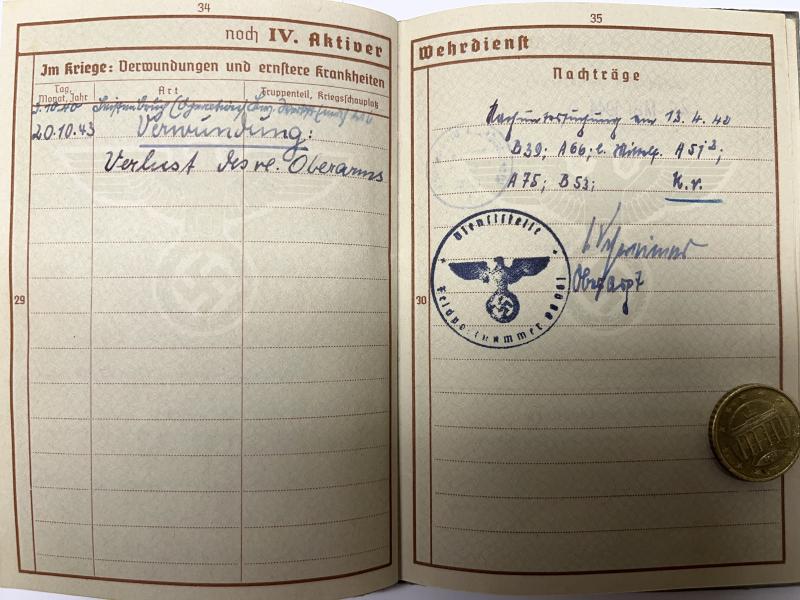 34
noch IV. Aktiver
Im Kriege: Verwundungen und ernstere Krankheiten
Tag, Monat, Jahr
Art
Truppenteil, Kriegsschauplatz
3.10.40 Leistenbruch (Operation)
20.10.43 Verwundung:
Verlust des re. Oberarms
29
35
Wehrdienst
Nachträge
Nachuntersuchung am 13.4.40
B39; A66; l. A51²;
A75; B53; K.v.
Oberarzt
Dienststelle
Feldpostnummer
30